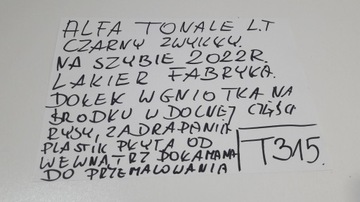 ALFA TONALE L.T
CZARNY ZWYKŁY.
NA SZYBIE 2022R.
LAKIER FABRYKA.
DOŁEK WGNIOTKA NA
ŚRODKU W DOLNEJ CZĘŚCI
RYSY, ZADRAPANIA
PLASTIK PŁYTA OD
WEWNĄTRZ DOKAMANA
DO PRZEMALOWANIA
T315.